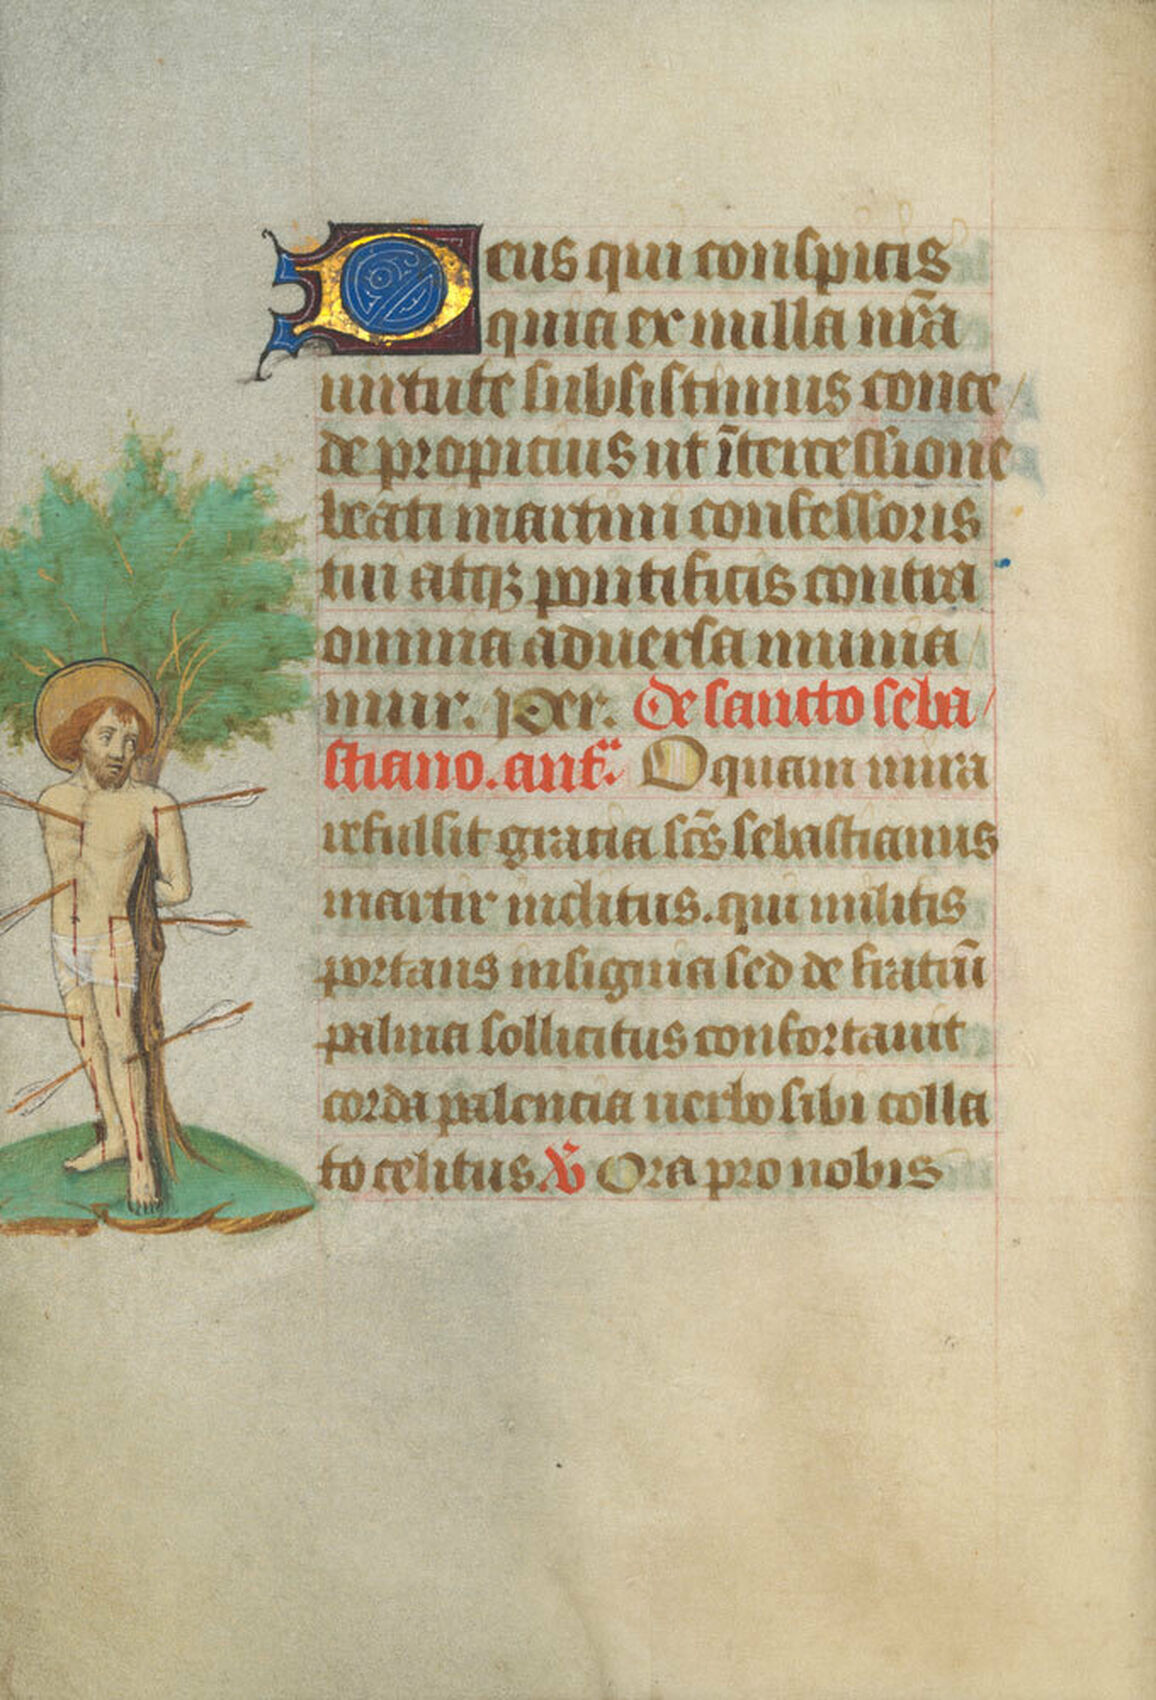 Deus qui conspicis
quia ex nulla nr̄a
uirtute subsistimus conce
de propicius ut ītercessione
beati martini confessoris
tui atqꝫ pontificis contra
omnia aduersa munia
mur. Per. De sancto seba
stiano. ant. O quam mira
refulsit gracia scs̄ sebastianus
martir inclitus. qui militis
portans insignia sed de fratrū
palma sollicitus confortauit
corda palencia uerbo sibi colla
to celitus. ℣ Ora pro nobis